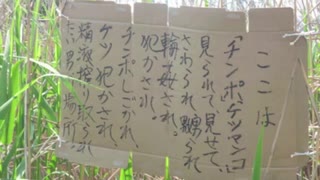 ここは
「チンポ、ケツマンコ」
見られて、見せて、
さわられ、嬲られ
輪姦され。
犯かされ。
チンポしごかれ、
ケツ犯かされ、
精液搾り取られ
た男の場所